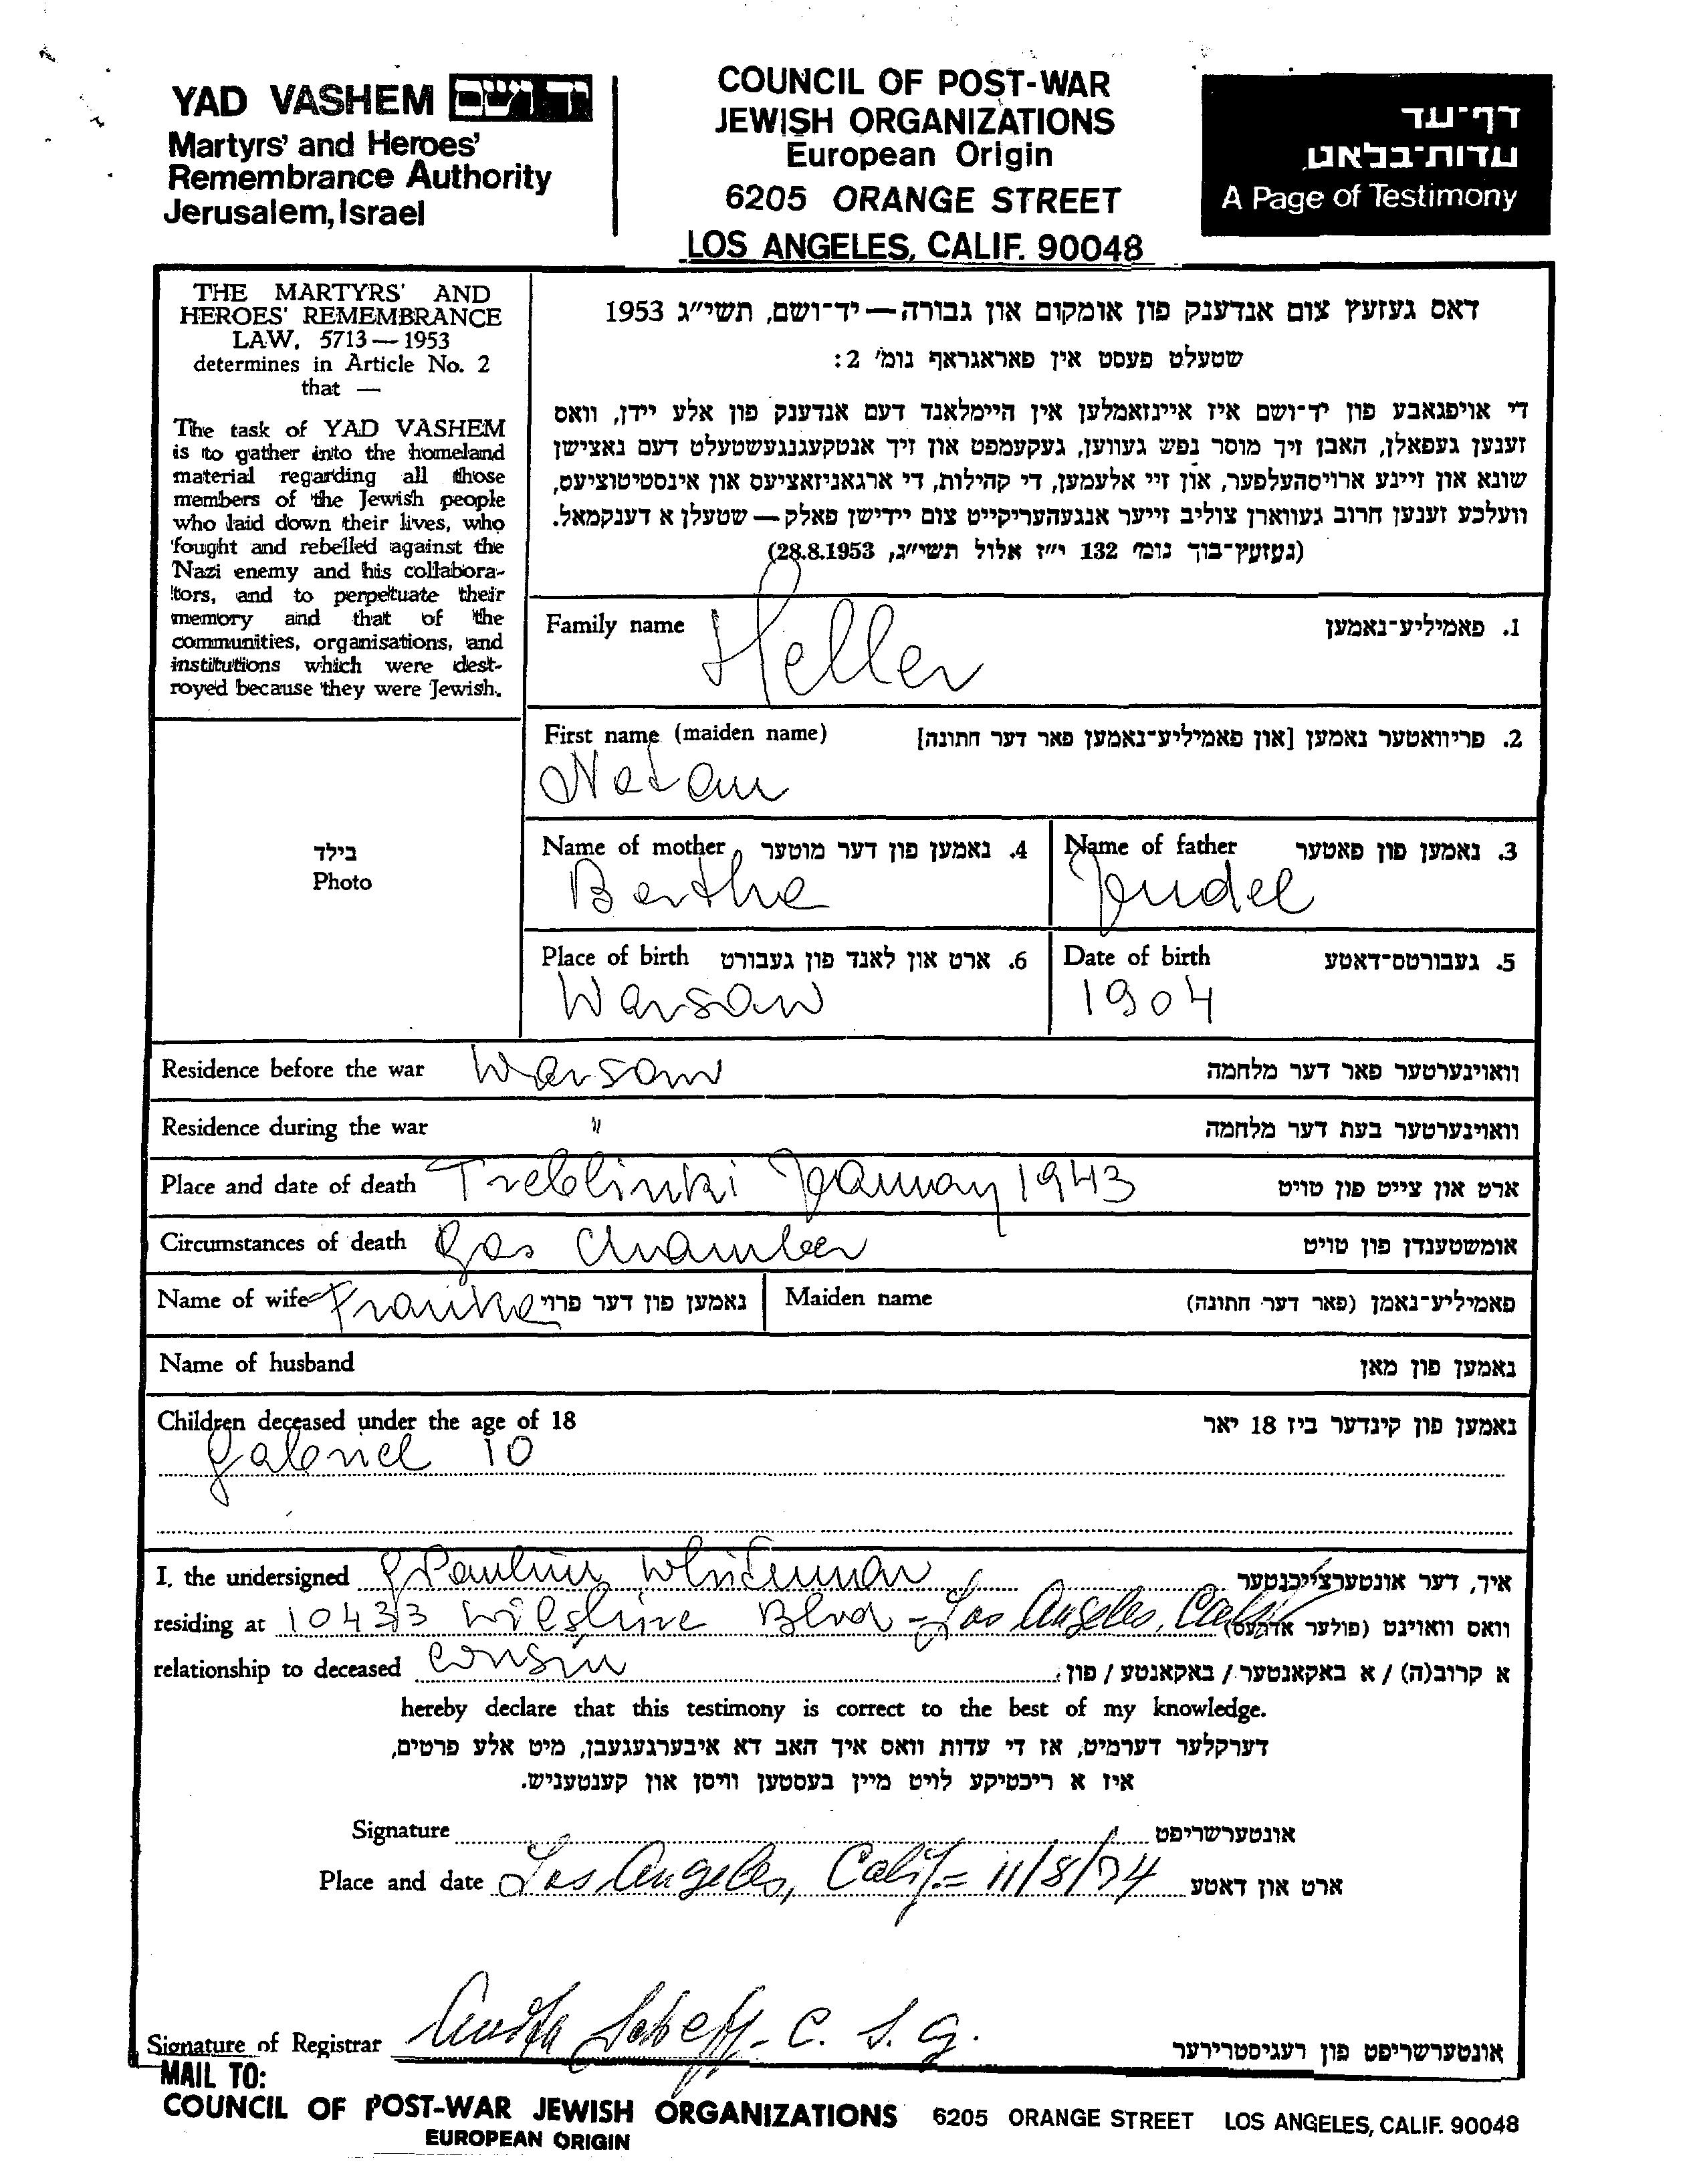 YAD VASHEM יד ושם
Martyrs' and Heroes'
Remembrance Authority
Jerusalem, Israel
COUNCIL OF POST-WAR
JEWISH ORGANIZATIONS
European Origin
6205 ORANGE STREET
LOS ANGELES, CALIF. 90048
דף־עד
עדות־בלאט
A Page of Testimony
THE MARTYRS' AND
HEROES' REMEMBRANCE
LAW, 5713—1953
determines in Article No. 2
that —
The task of YAD VASHEM
is to gather into the homeland
material regarding all those
members of the Jewish people
who laid down their lives, who
fought and rebelled against the
Nazi enemy and his collabora-
tors, and to perpetuate their
memory and that of the
communities, organisations, and
institutions which were dest-
royed because they were Jewish.
דאס געזעץ צום אנדענק פון אומקום און גבורה — יד־ושם, תשי״ג 1953
שטעלט פעסט אין פאראגראף נומ׳ 2:
די אויפגאבע פון יד־ושם איז איינזאמלען אין היימלאנד דעם אנדענק פון אלע יידן, וואס
זענען געפאלן, האבן זיך מוסר נפש געווען, געקעמפט און זיך אנטקעגנגעשטעלט דעם נאצישן
שונא און זיינע ארויסהעלפער, און זיי אלעמען, די קהילות, די ארגאניזאציעס און אינסטיטוציעס,
וועלכע זענען חרוב געווארן צוליב זייער אנגעהעריקייט צום יידישן פאלק — שטעלן א דענקמאל.
(געזעץ־בוך נומ׳ 132 י״ז אלול תשי״ג, 28.8.1953)
Family name Heller 1. פאמיליע־נאמען
First name (maiden name) 2. פריוואטער נאמען [און פאמיליע־נאמען פאר דער חתונה]
Natan
בילד
Photo
Name of mother 4. נאמען פון דער מוטער
Berthe
Name of father 3. נאמען פון פאטער
Judel
Place of birth 6. ארט און לאנד פון געבורט
Warsaw
Date of birth 5. געבורטס־דאטע
1904
Residence before the war Warsaw וואוינערטער פאר דער מלחמה
Residence during the war " וואוינערטער בעת דער מלחמה
Place and date of death Treblinki January 1943 ארט און צייט פון טויט
Circumstances of death Gas Chamber אומשטענדן פון טויט
Name of wife Franke נאמען פון דער פרוי Maiden name פאמיליע־נאמן (פאר דער חתונה)
Name of husband נאמען פון מאן
Children deceased under the age of 18 נאמען פון קינדער ביז 18 יאר
Gabriel 10
I, the undersigned Pauline Whiteman איך, דער אונטערצייכנטער
residing at 10433 Wilshire Blvd - Los Angeles, Calif וואס וואוינט (פולער אדרעס)
relationship to deceased cousin א קרוב(ה) / א באקאנטער / באקאנטע / פון:
hereby declare that this testimony is correct to the best of my knowledge.
דערקלער דערמיט, אז די עדות וואס איך האב דא איבערגעגעבן, מיט אלע פרטים,
איז א ריכטיקע לויט מיין בעסטען וויסן און קענטעניש.
Signature אונטערשריפט
Place and date Los Angeles, Calif. = 11/8/74 ארט און דאטע
Signature of Registrar Anita Scheff - C. S. G. אונטערשריפט פון רעגיסטרירער
MAIL TO:
COUNCIL OF POST-WAR JEWISH ORGANIZATIONS 6205 ORANGE STREET LOS ANGELES, CALIF. 90048
EUROPEAN ORIGIN